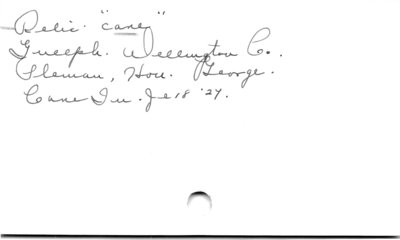 Relic. "cane"
Guelph. Wellington Co.
Sleman, Hon. George.
Cane In. Je 18 '24.